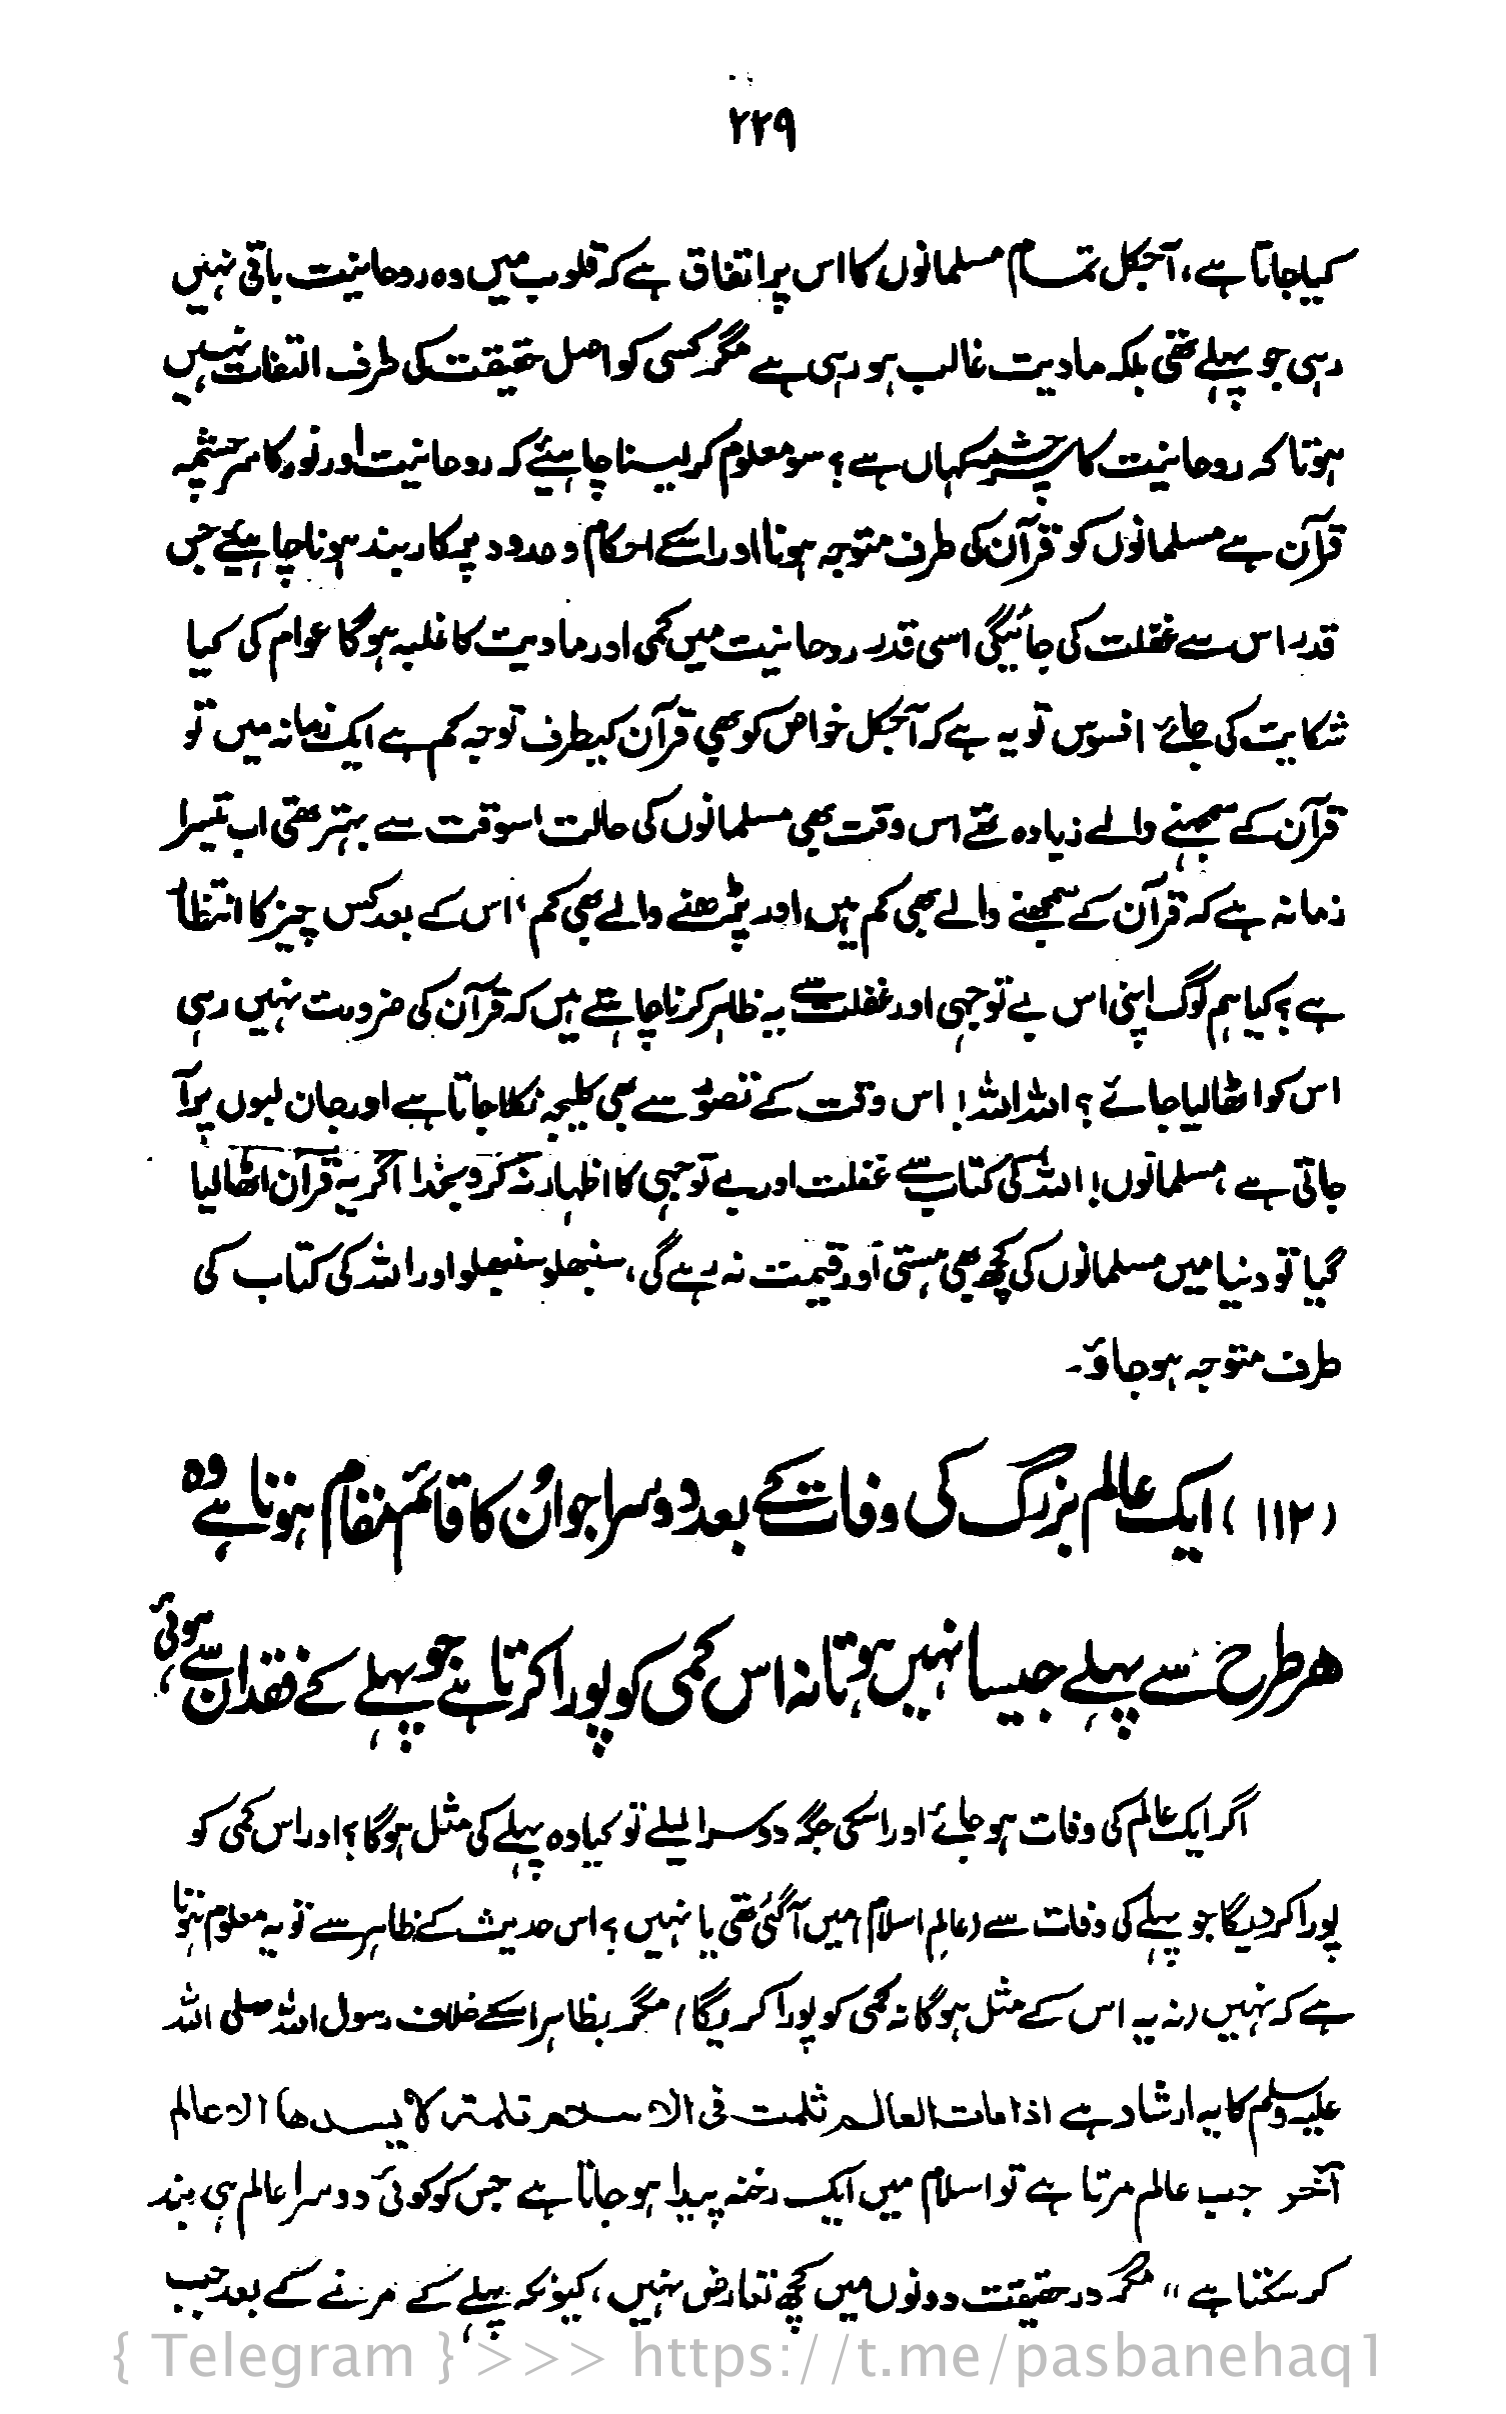 ۲۲۹
کیا جاتا ہے، آجکل تمام مسلمانوں کا اس پر اتفاق ہے کہ قلوب میں وہ روحانیت باقی نہیں
رہی جو پہلے تھی بلکہ مادیت غالب ہو رہی ہے مگر کسی کو اصل حقیقت کی طرف التفات نہیں
ہوتا کہ روحانیت کا سرچشمہ کہاں ہے؟ سو معلوم کر لینا چاہیئے کہ روحانیت اور نور کا سرچشمہ
قرآن ہے مسلمانوں کو قرآن کی طرف متوجہ ہونا اور اسکے احکام و حدود پر کاربند ہونا چاہیئے جس
قدر اس سے غفلت کی جائیگی اسی قدر روحانیت میں کمی اور مادیت کا غلبہ ہوگا عوام کی کیا
شکایت کی جائے افسوس تو یہ ہے کہ آجکل خواص کو بھی قرآن کیطرف توجہ کم ہے ایک زمانہ میں تو
قرآن کے سمجھنے والے زیادہ تھے اس وقت بھی مسلمانوں کی حالت اسوقت سے بہتر تھی اب تیسرا
زمانہ ہے کہ قرآن کے سمجھنے والے بھی کم ہیں اور پڑھنے والے بھی کم، اس کے بعد کس چیز کا انتظار
ہے؟ کیا ہم لوگ اپنی اس بے توجہی اور غفلت سے یہ ظاہر کرنا چاہتے ہیں کہ قرآن کی ضرورت نہیں رہی
اس کو اٹھا لیا جائے؟ اللہ اللہ! اس وقت کے تصوّر سے بھی کلیجہ نکلا جاتا ہے اور جان لبوں پر آ
جاتی ہے، مسلمانوں! اللہ کی کتاب سے غفلت اور بے توجہی کا اظہار نہ کرو بخدا اگر یہ قرآن اٹھا لیا
گیا تو دنیا میں مسلمانوں کی کچھ بھی ہستی اور قیمت نہ رہے گی، سنبھلو سنبھلو اور اللہ کی کتاب کی
طرف متوجہ ہو جاؤ۔
(۱۱۲) ایک عالم بزرگ کی وفات کے بعد دوسرا جو اُن کا قائم مقام ہوتا ہے وہ
ہر طرح سے پہلے جیسا نہیں ہوتا نہ اس کمی کو پورا کرتا ہے جو پہلے کے فقدان سے ہوئی
اگر ایک عالم کی وفات ہو جائے اور اسکی جگہ دوسرا لیلے تو کیا وہ پہلے کی مثل ہوگا؟ اور اس کمی کو
پورا کر دیگا جو پہلے کی وفات سے (عالم اسلام) میں آگئی تھی یا نہیں؟ اس حدیث کے ظاہر سے تو یہ معلوم ہوتا
ہے کہ نہیں (نہ یہ اس کے مثل ہوگا نہ کمی کو پورا کریگا) مگر بظاہر اسکے خلاف رسول اللہ صلی اللہ
علیہ وسلم کا یہ ارشاد ہے اذا مات العالم ثلمت فی الاسلام ثلمۃ لا یسدھا الا عالم
آخر جب عالم مرتا ہے تو اسلام میں ایک رخنہ پیدا ہو جاتا ہے جس کو کوئی دوسرا عالم ہی بند
کر سکتا ہے " مگر در حقیقت دونوں میں کچھ تعارض نہیں، کیونکہ پہلے کے مرنے کے بعد جب
{ Telegram } >>> https://t.me/pasbanehaq1